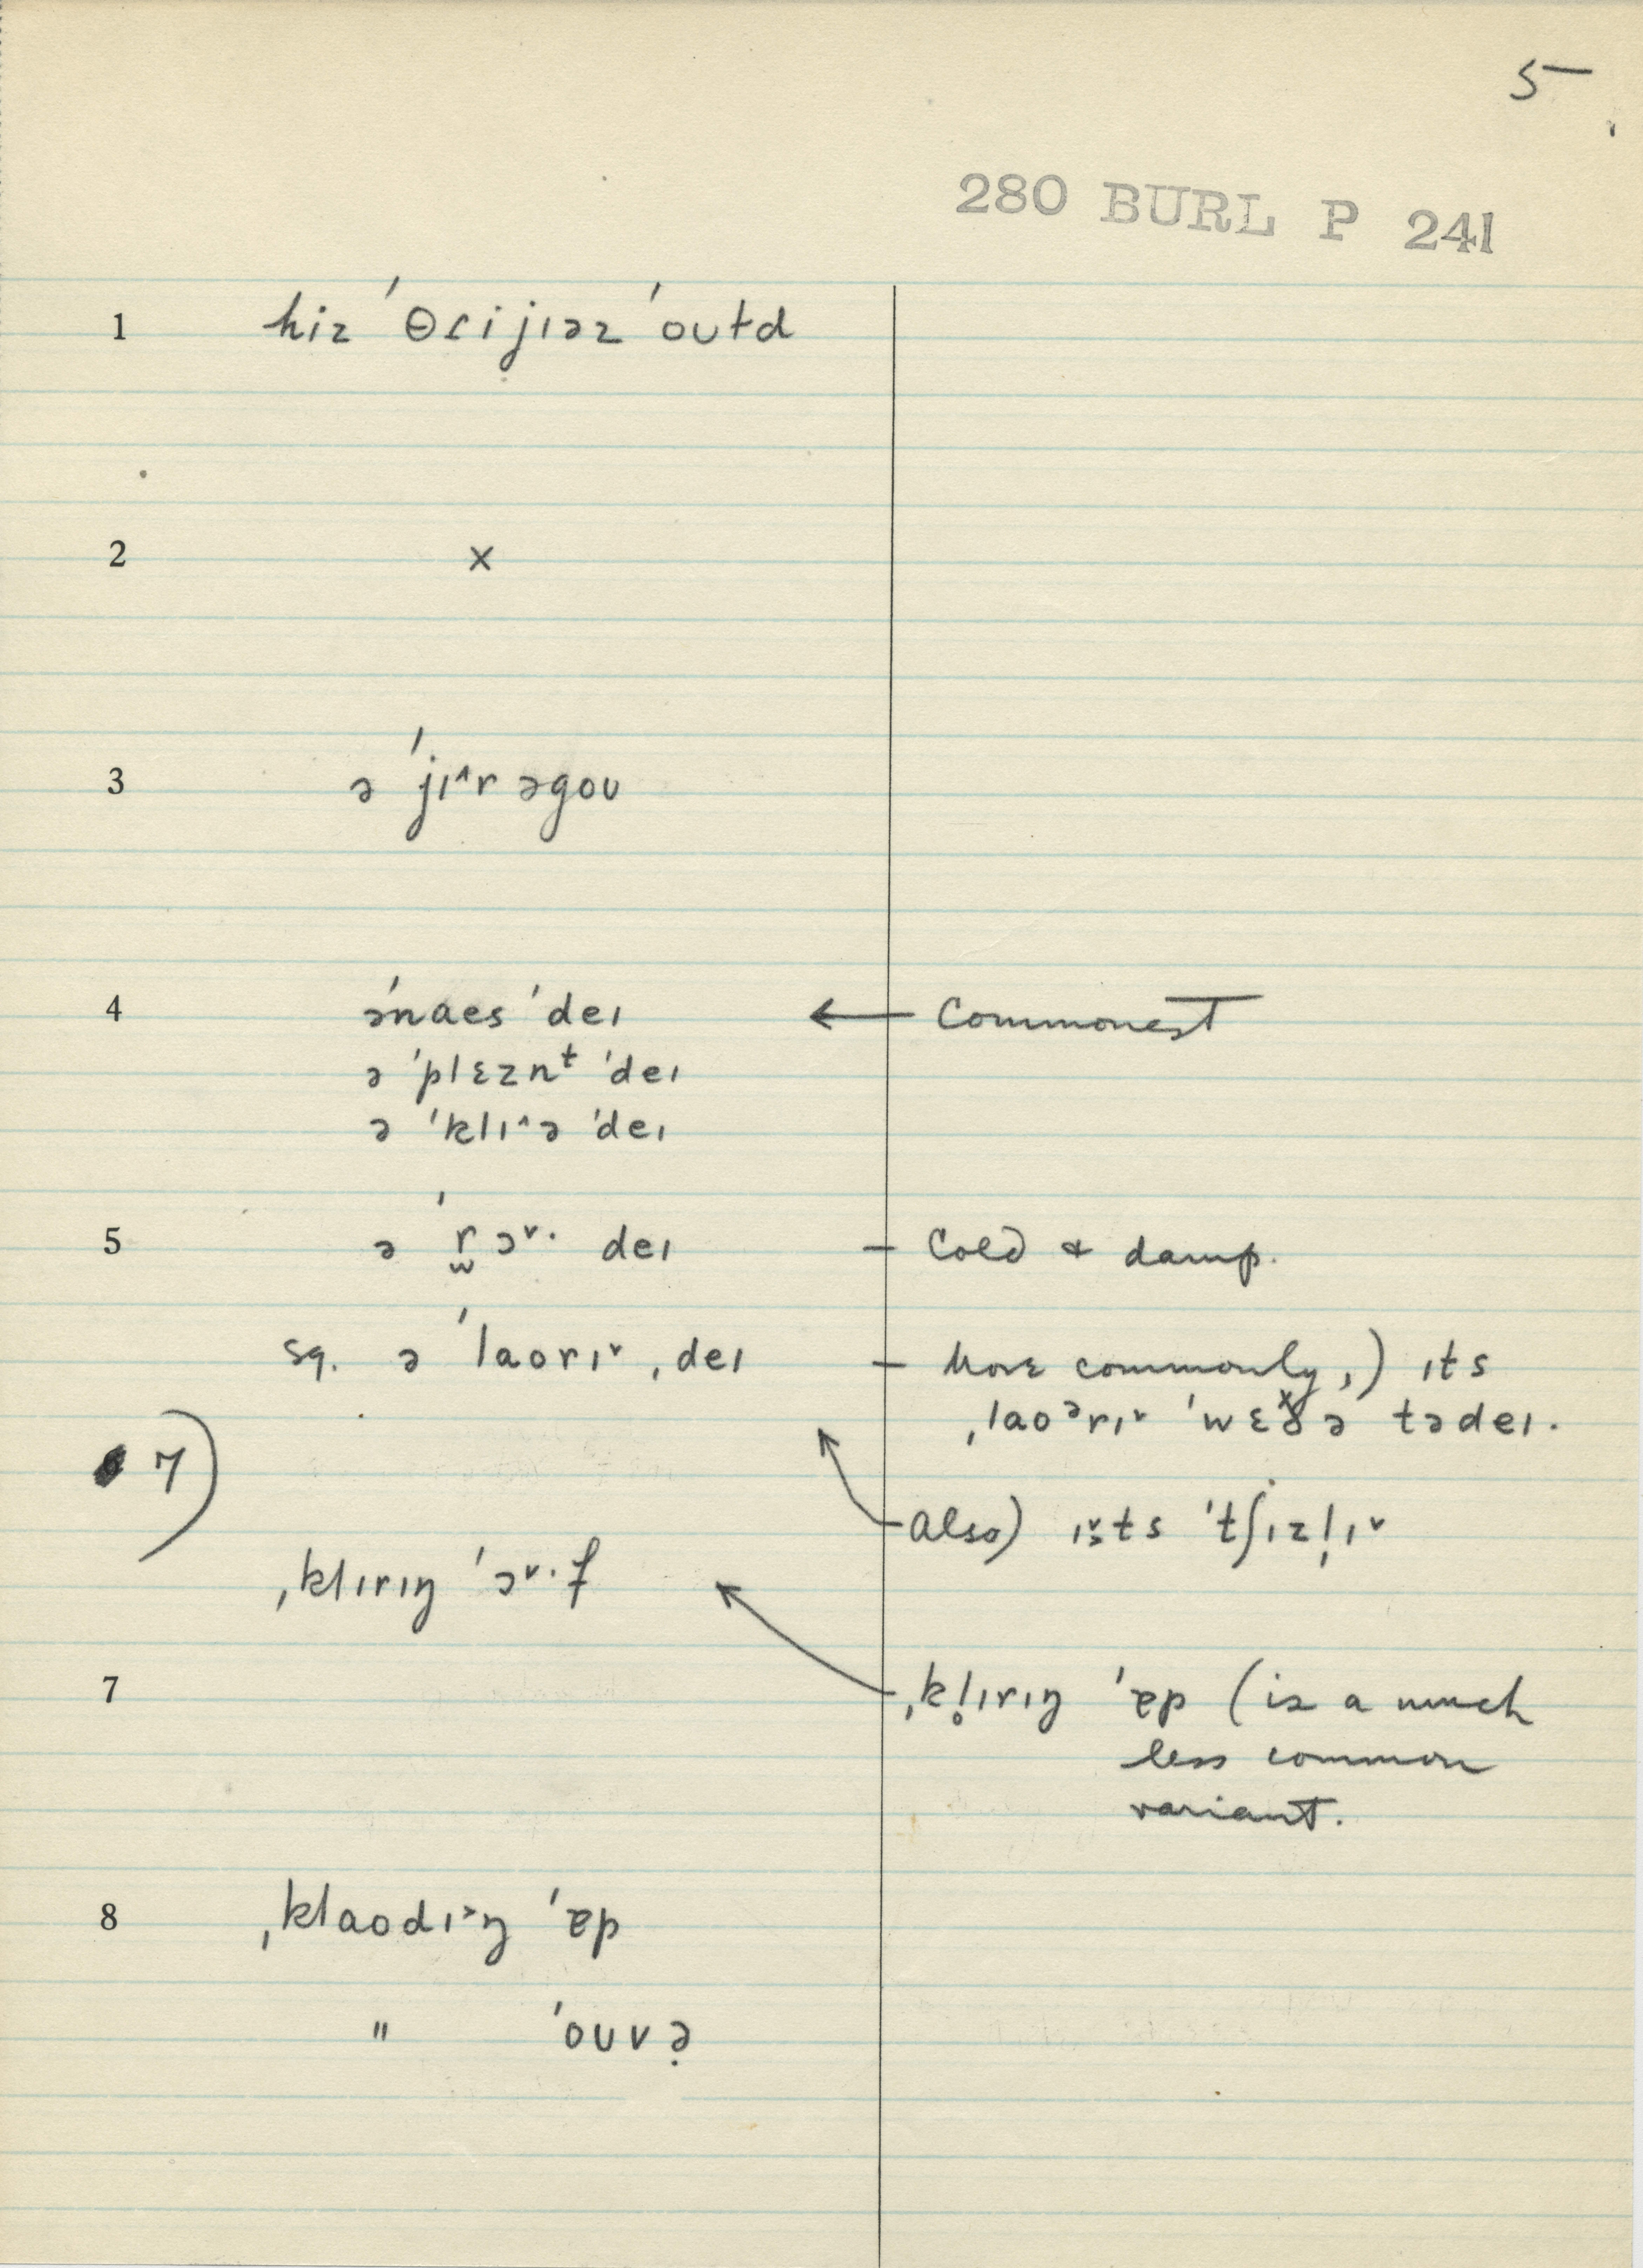 5
280 BURL P 241
1 hiz ˈθɾijɪəz ˈoʊtd
2 x
3 ə ˈjɪ^r əgoʊ
4 əˈnaes ˈdeɪ ← Commonest
ə ˈplɛznᵗ ˈdeɪ
ə ˈklɪ^ə ˈdeɪ
5 ə ˈr̫ɔ˅· deɪ – Cold & damp.
sq. ə ˈlaorɪ˅ ˌdeɪ – More commonly,) ɪts
ˌlaoᵊrɪ˅ ˈwɛðə tədeɪ.
7)
Also) ɪ˅ts ˈtʃɪzl̩ɪ˅
ˌklɪrɪŋ ˈɔ˅·f
7 ˌkl̥ɪrɪŋ ˈɐp (is a much
less common
variant.
8 ˌklaodɪ˃ŋ ˈɐp
" ˈoʊvə̣